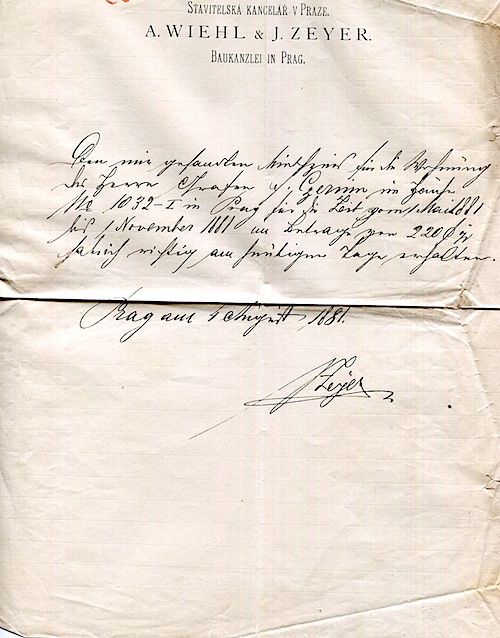 STAVITELSKÁ KANCELÁŘ V PRAZE.
A. WIEHL & J. ZEYER.
BAUKANZLEI IN PRAG.
Den mir gesandten Miethzins für die Wohnung
des Herrn Grafen v. Czernin im Hause
No 1032-I in Prag für die Zeit vom 1 Mai 1881
bis 1 November 1881 im Betrage von 220 f
habe ich richtig am heutigen Tage erhalten.
Prag am 1 August 1881.
JZeyer